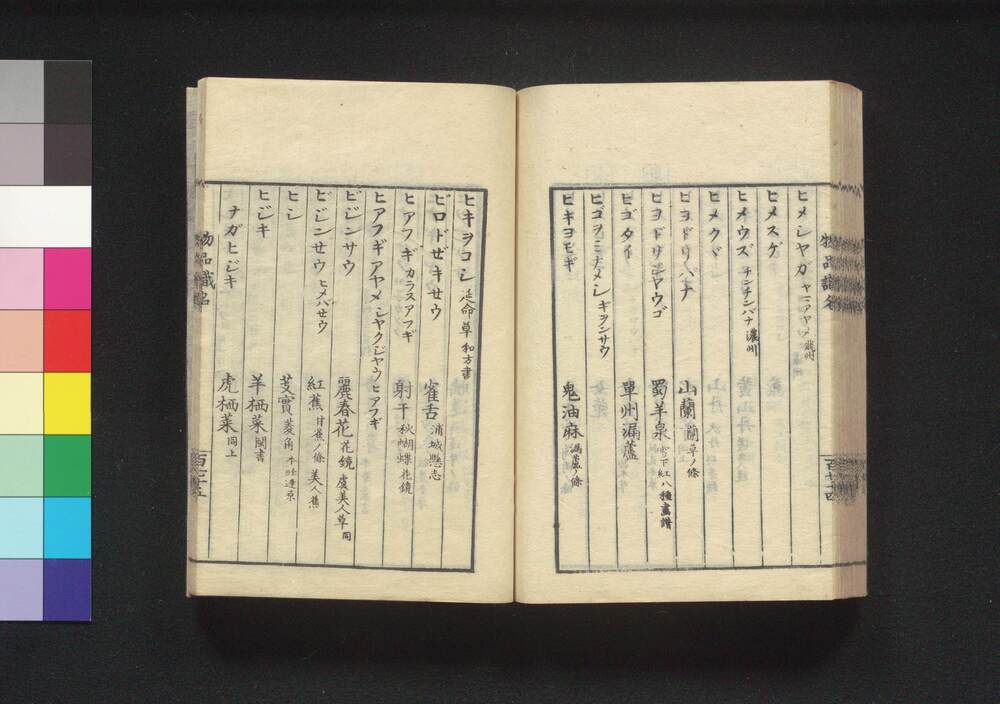 ヒメシヤガ
ヒメスゲ
ヒメウズ チンチンバナ 濃州
ヒメクヾ
ヒヨドリバナ 山蘭 蘭草ノ條
ヒヨドリジヤウゴ 蜀羊泉 雪下紅 八種畫譜
ヒゴタイ 單州漏蘆
ヒゴヲミナメシ キヲンサウ
ヒキヨモギ 鬼油麻 漏蘆ノ條
百七十四
ヒキヲコシ 延命草 和方書
ビロドゼキセウ 雀舌 浦城縣志
ヒアフギ カラスアフギ 射干 秋蝴蝶 花鏡
ヒアフギアヤメ シヤクジヤウヒアフギ
ビジンサウ 麗春花 花鏡 虞美人草 同
ビジンセウ ヒメバセウ 紅蕉 甘蕉ノ條 美人蕉
ヒシ 芰實 菱角
ヒジキ 羊栖菜 閩書
ナガヒジキ 虎栖菜 同上
物品識名
百七十五